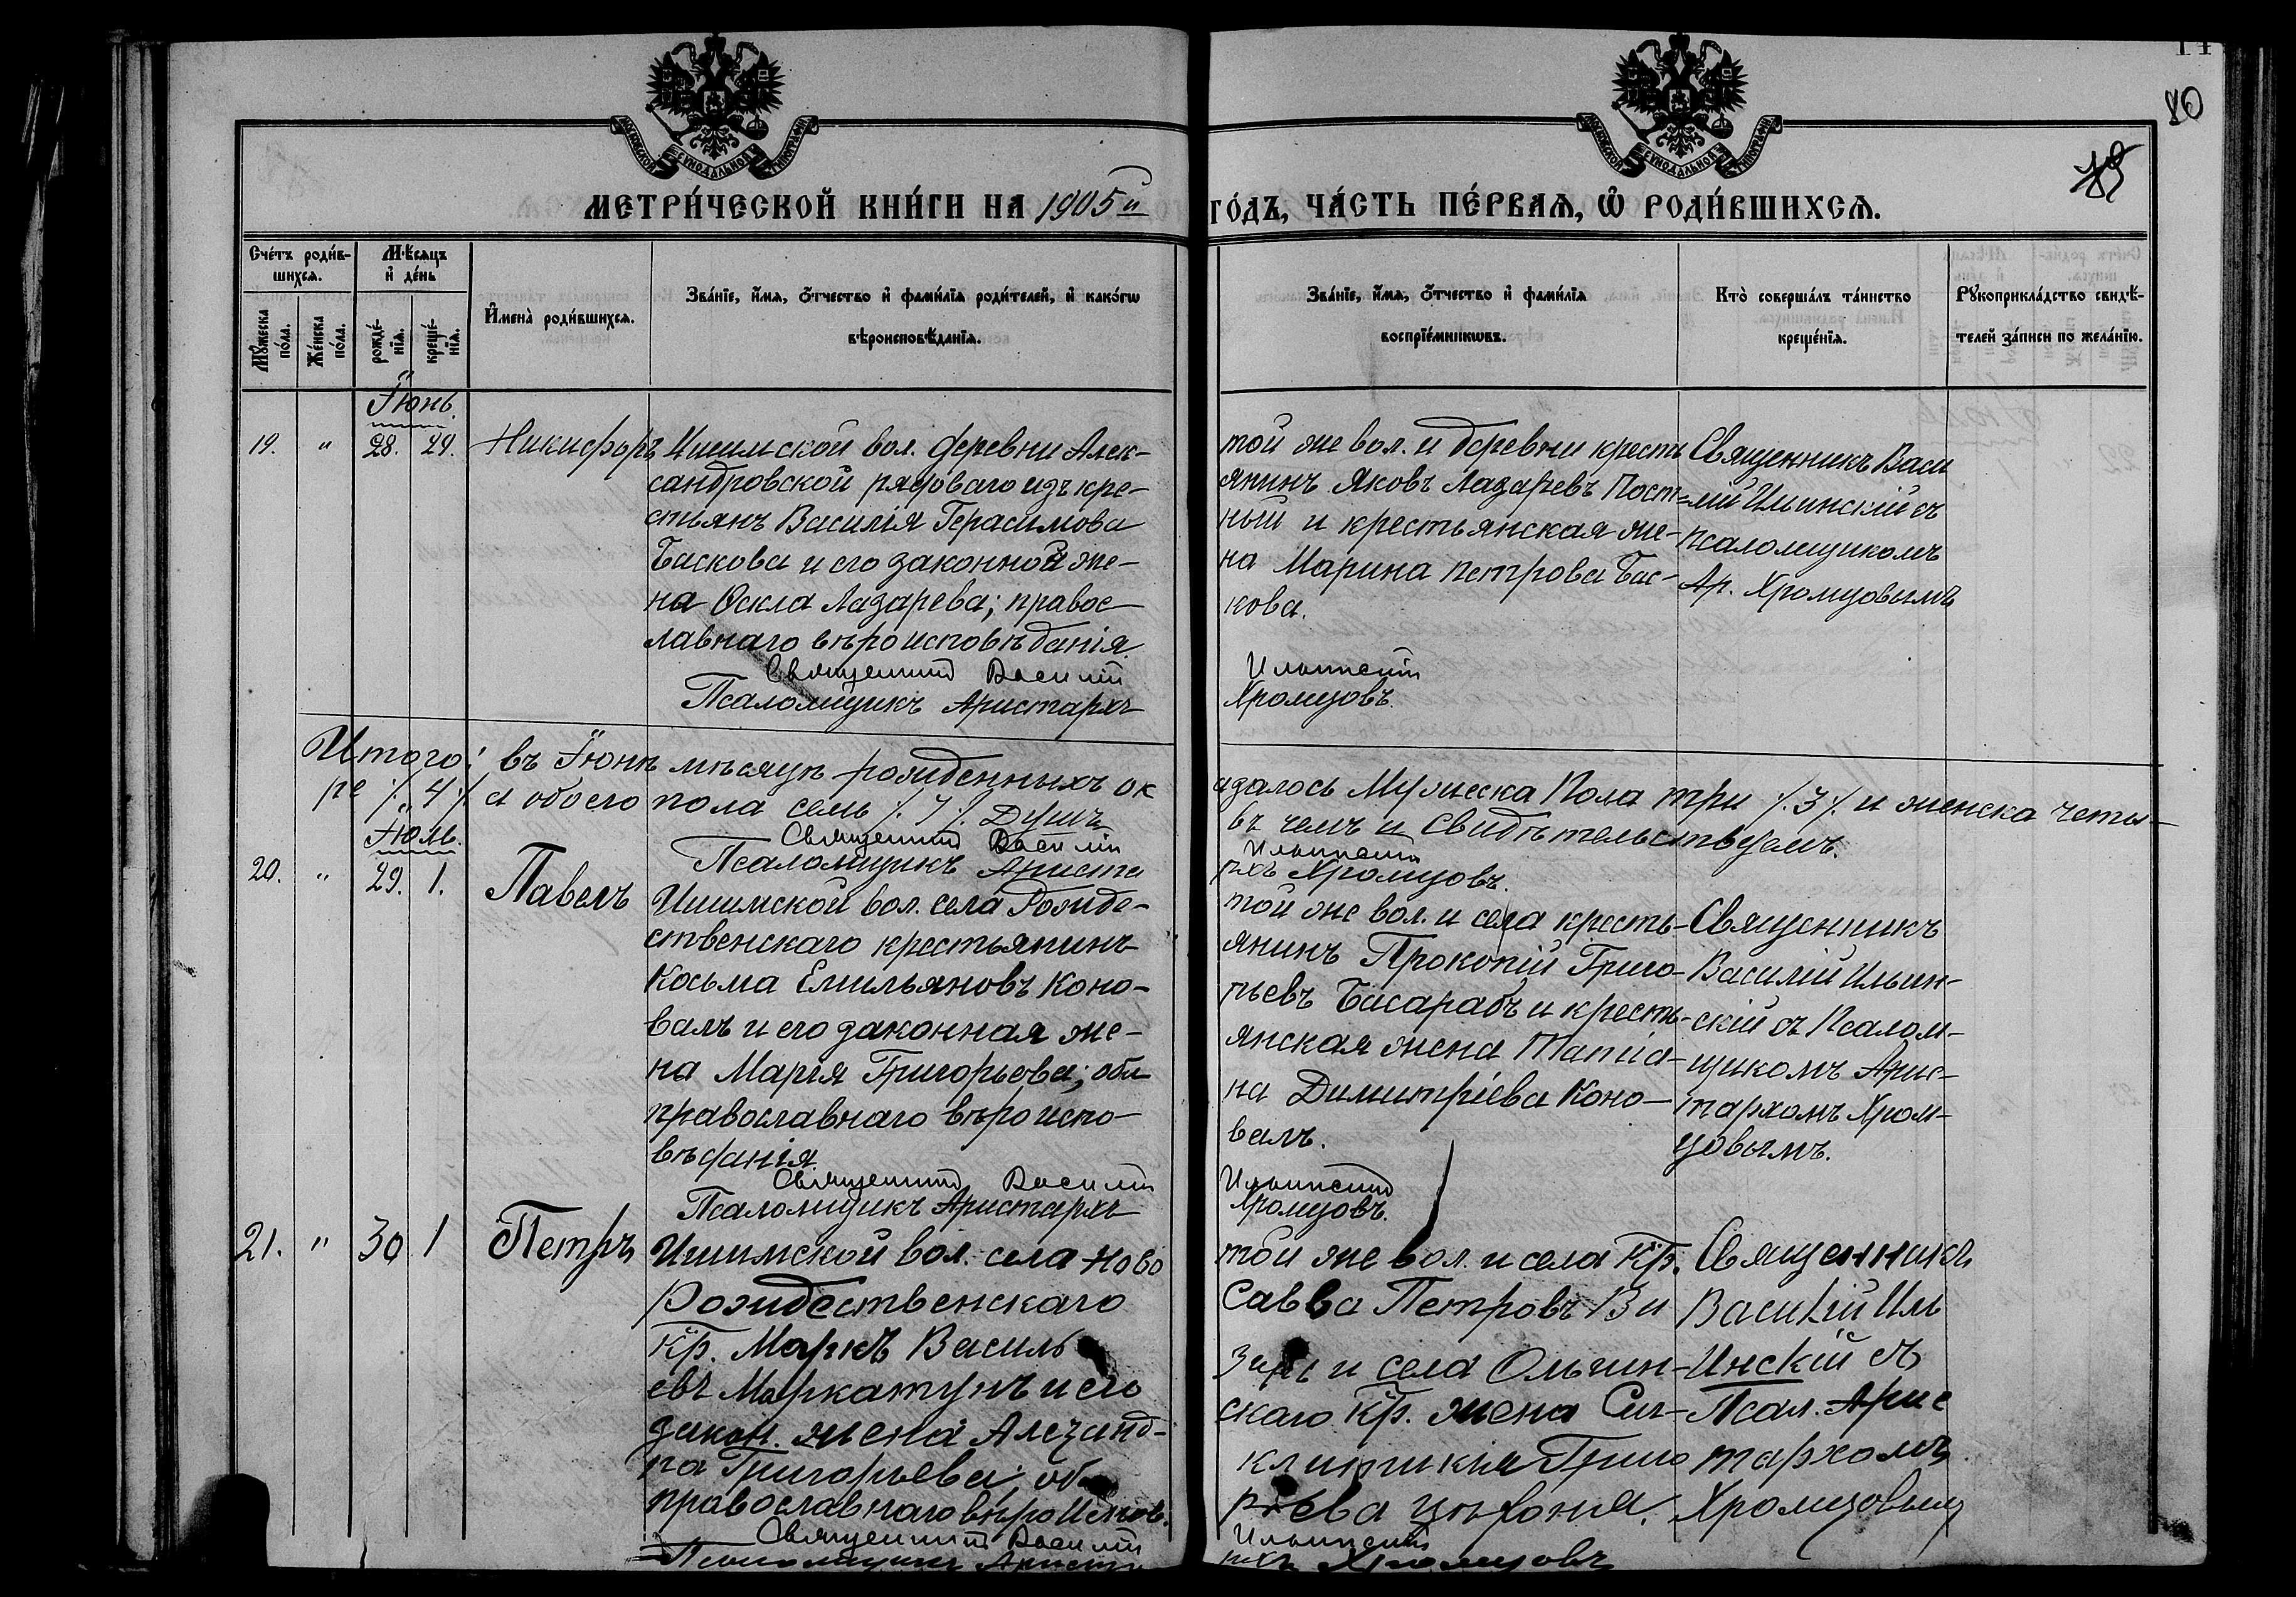 14
80
МОСКОВСКОЙ СУНОДАЛЬНОЙ ТИПОГРАФІИ
МОСКОВСКОЙ СУНОДАЛЬНОЙ ТИПОГРАФІИ
МЕТРИ́ЧЕСКОЙ КНИ́ГИ НА 1905 й
ГО́ДЪ, ЧА́СТЬ ПЕ́РВАѦ, Ѡ РОДИ́ВШИХСѦ.
Сче́тъ роди́в-
шихсѧ.
Мꙋжеска по́ла.
Же́нска по́ла.
Мѣсѧцъ и҆ де́нь
рожде́-
нїѧ.
креще́-
нїѧ.
И҆мена̀ роди́вшихсѧ.
Зва́нїе, и҆́мѧ, ѻ҆́тчество и҆ фами́лїѧ роди́телей, и҆ како́гѡ
вѣроисповѣ́данїѧ.
Зва́нїе, и҆́мѧ, ѻ҆́тчество и҆ фами́лїѧ
воспрїе́мникѡвъ.
Кто̀ соверша́лъ та́инство
креще́нїѧ.
Рꙋкоприкла́дство свидѣ́-
телей за́писи по жела́нїю.
Іюнь.
19. " 28. 29. Никифоръ
Ишимской вол. деревни Алек-
сандровской рядоваго изъ кре-
стьянъ Василія Герасимова
Баскова и его законной же-
на Фекла Лазарева; правос-
лавнаго вѣроисповѣданія.
Священникъ Василій
Псаломщикъ Аристархъ
той же вол. и деревни кресть
янинъ Яковъ Лазаревъ Пост-
ный и крестьянская же-
на Марина Петрова Бас-
кова.
Ильинскій
Хромцовъ.
Священникъ Васи
лій Ильинскій съ
псаломщикомъ
Ар. Хромцовымъ
Итого: въ Іюнѣ мѣсяцѣ рожденныхъ ок
азалось Мужеска Пола три /.3/. и женска четы-
ре /.4/. а обоего пола семь /.7/. Душъ
въ чемъ и свидѣтельствуемъ.
Священникъ Василій
Ильинскій
Псаломщикъ Ариста
рхъ Хромцовъ.
Іюль.
20. " 29. 1. Павелъ
Ишимской вол. села Рожде-
ственскаго крестьянинъ
Косьма Емильяновъ Коно-
валъ и его законная же-
на Марія Григорьева; оба
православнаго вѣроиспо-
вѣданія.
Священникъ Василій
Псаломщикъ Аристархъ
той же вол. и села кресть-
янинъ Прокопій Григо-
рьевъ Басарабъ и кресть-
янская жена Татіа-
на Димитріева Коно-
валъ.
Ильинскій
Хромцовъ.
Священникъ
Василій Ильин-
скій съ Псалом-
щикомъ Арис-
тархомъ Хром-
цовымъ.
21. " 30 1 Петръ
Ишимской вол. села Ново
Рождественскаго
Кр. Маркъ Василь
евъ Маркатунъ и его
закон. жена Алезанд-
ра Григорьева; об
православнаго вѣроиспов.
Священникъ Василій
Псаломщикъ Ариста
той же вол. и села Кр.
Савва Петровъ Ви
и села Ольгин-
скаго Кр. жена Син-
клитикія Григо
рьева
Ильинскій
рхъ Хромцовъ
Священникъ
Василій Иль
инскій съ
Псал. Арис
тархомъ
Хромцовым